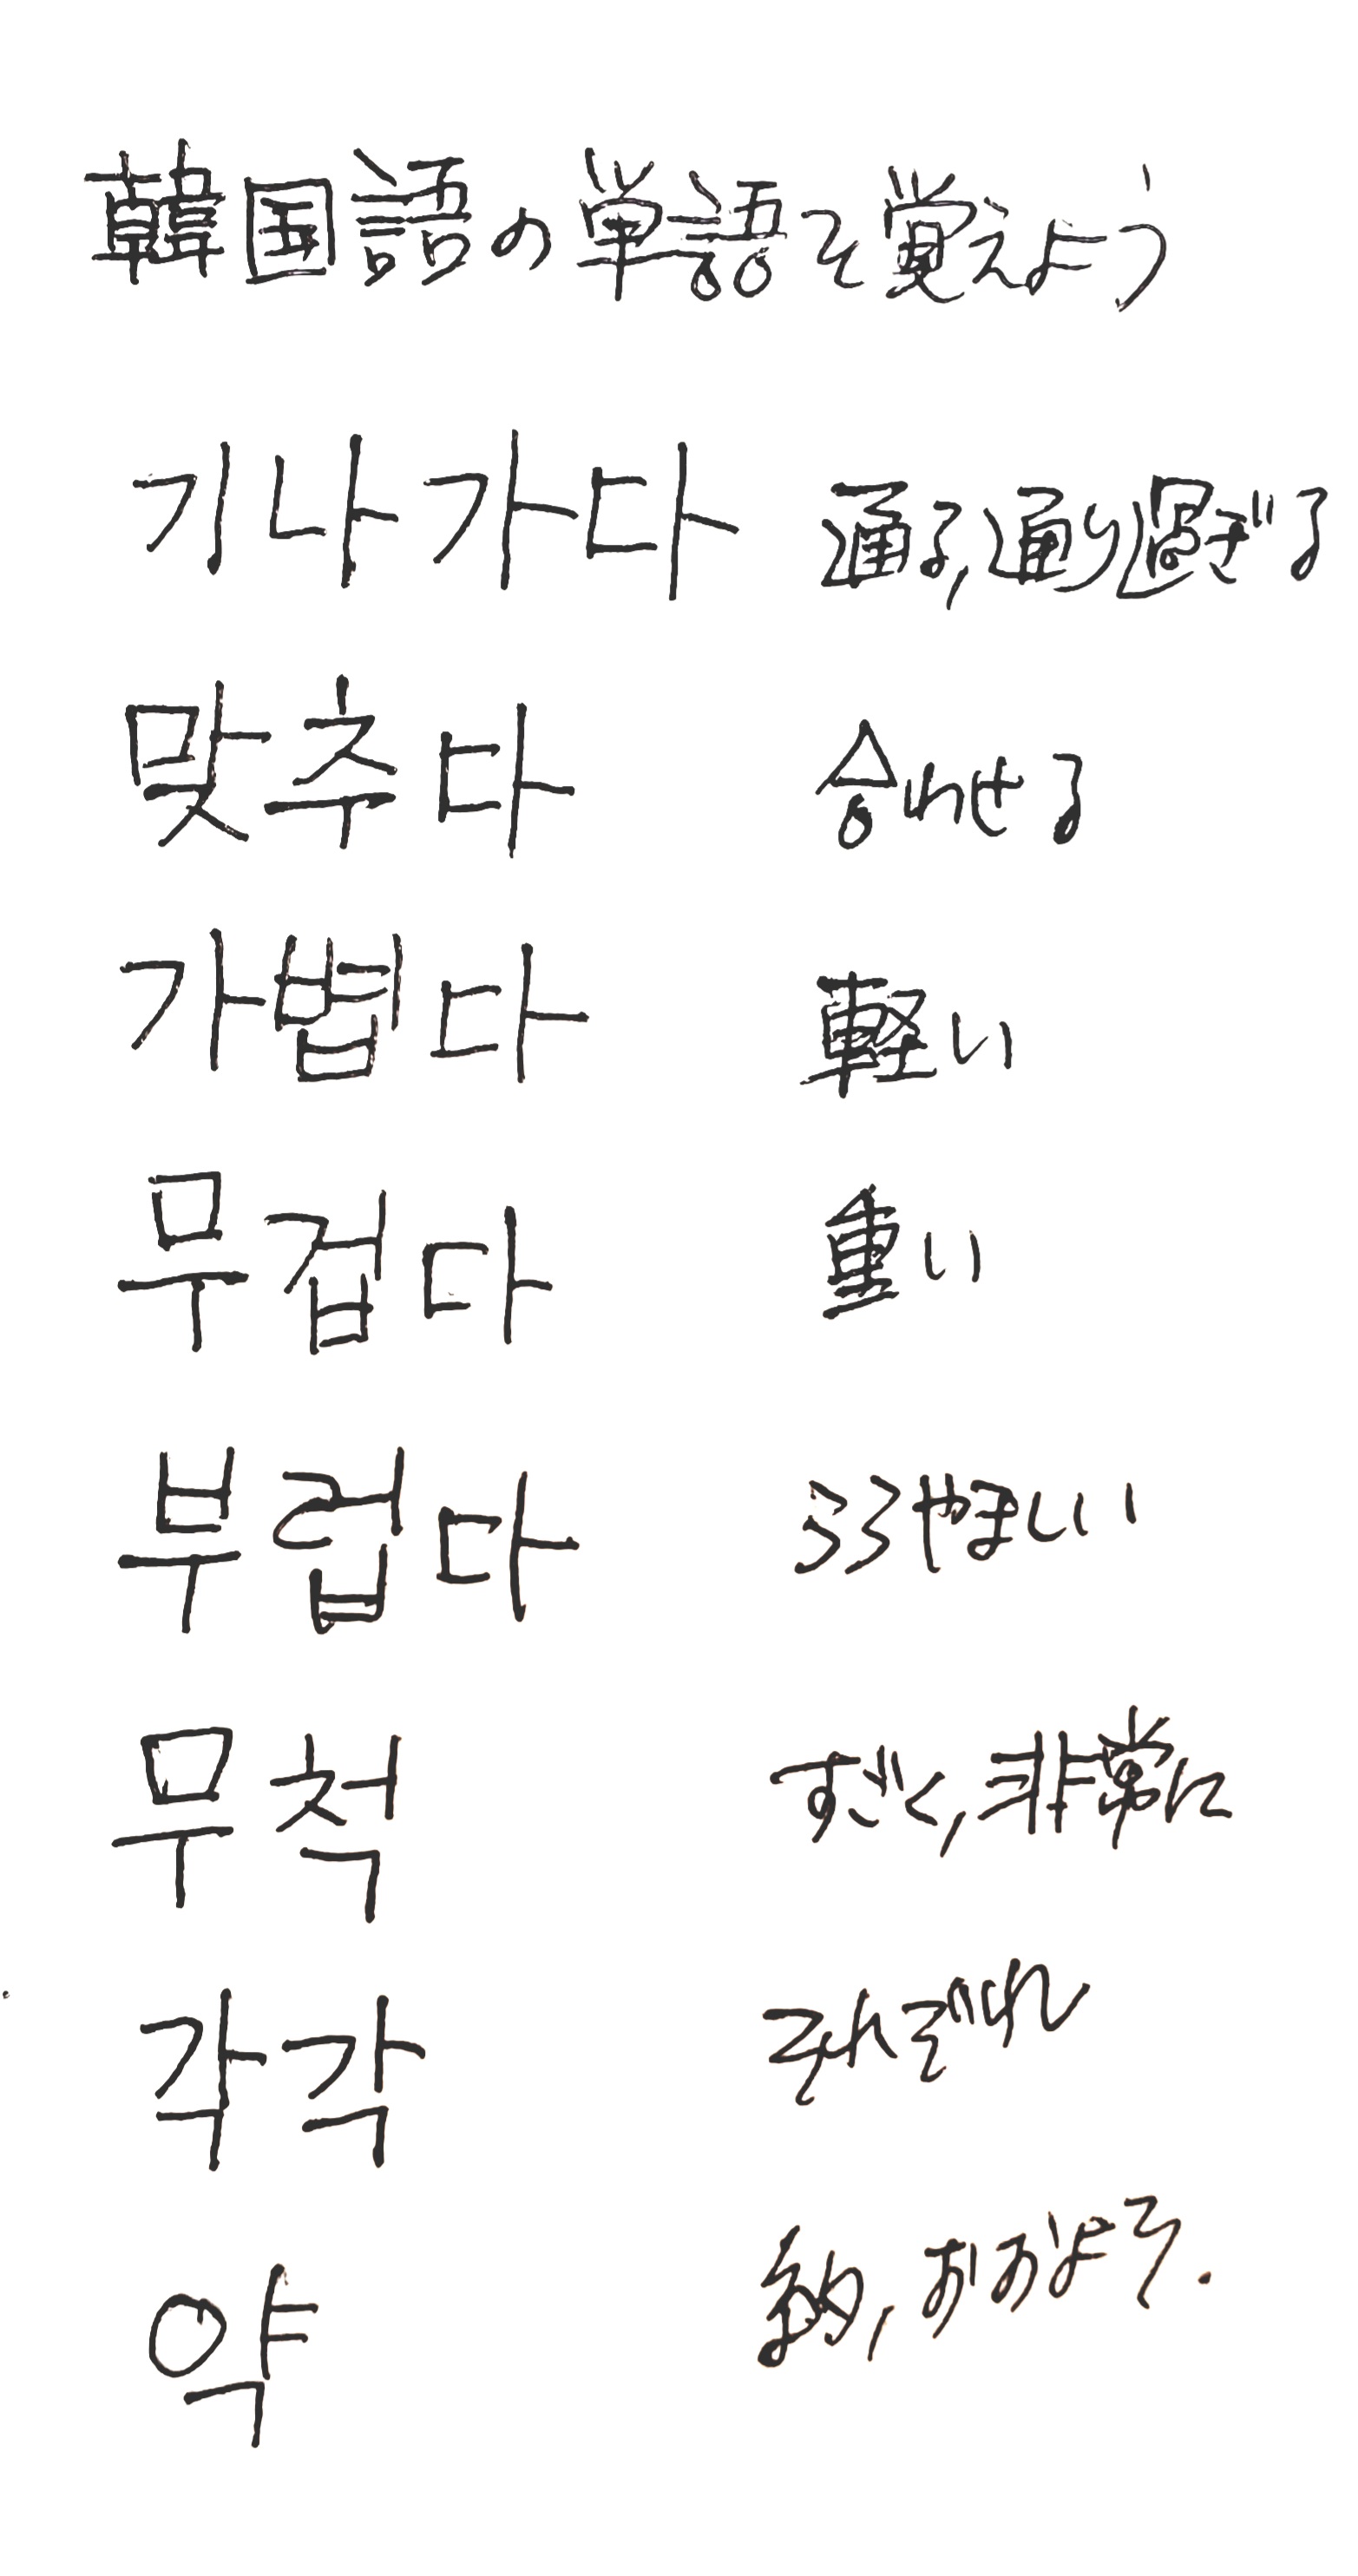 韓国語の単語を覚えよう
기나가다 通る,通り過ぎる
맞추다 合わせる
가볍다 軽い
무겁다 重い
부럽다 うらやましい
무척 すごく,非常に
각각 それぞれ
약 約,おおよそ.